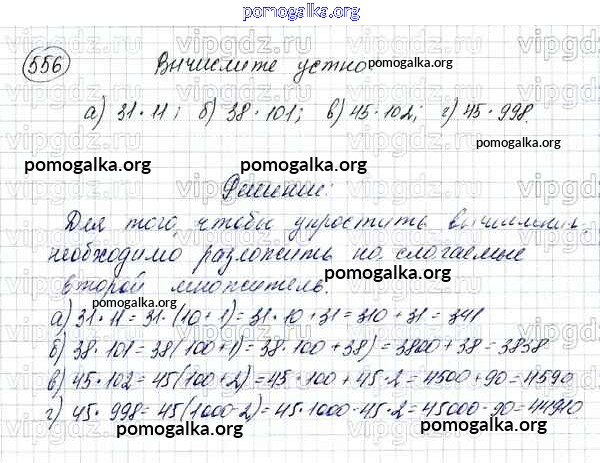 pomogalka.org
556 Вычислите устно
pomogalka.org
а) 31·11; б) 38·101; в) 45·102; г) 45·998.
pomogalka.org
pomogalka.org pomogalka.org
Решение:
Для того, чтобы упростить вычисления,
необходимо разложить на слагаемые
pomogalka.org
второй множитель.
pomogalka.org
а) 31·11 = 31·(10+1) = 31·10+31 = 310+31 = 341
pomogalka.org
б) 38·101 = 38(100+1) = 38·100+38) = 3800+38 = 3838
в) 45·102 = 45(100+2) = 45·100+45·2 = 4500+90 = 4590
г) 45·998 = 45(1000-2) = 45·1000-45·2 = 45000-90 = 44910
pomogalka.org pomogalka.org
vipgdz.ru